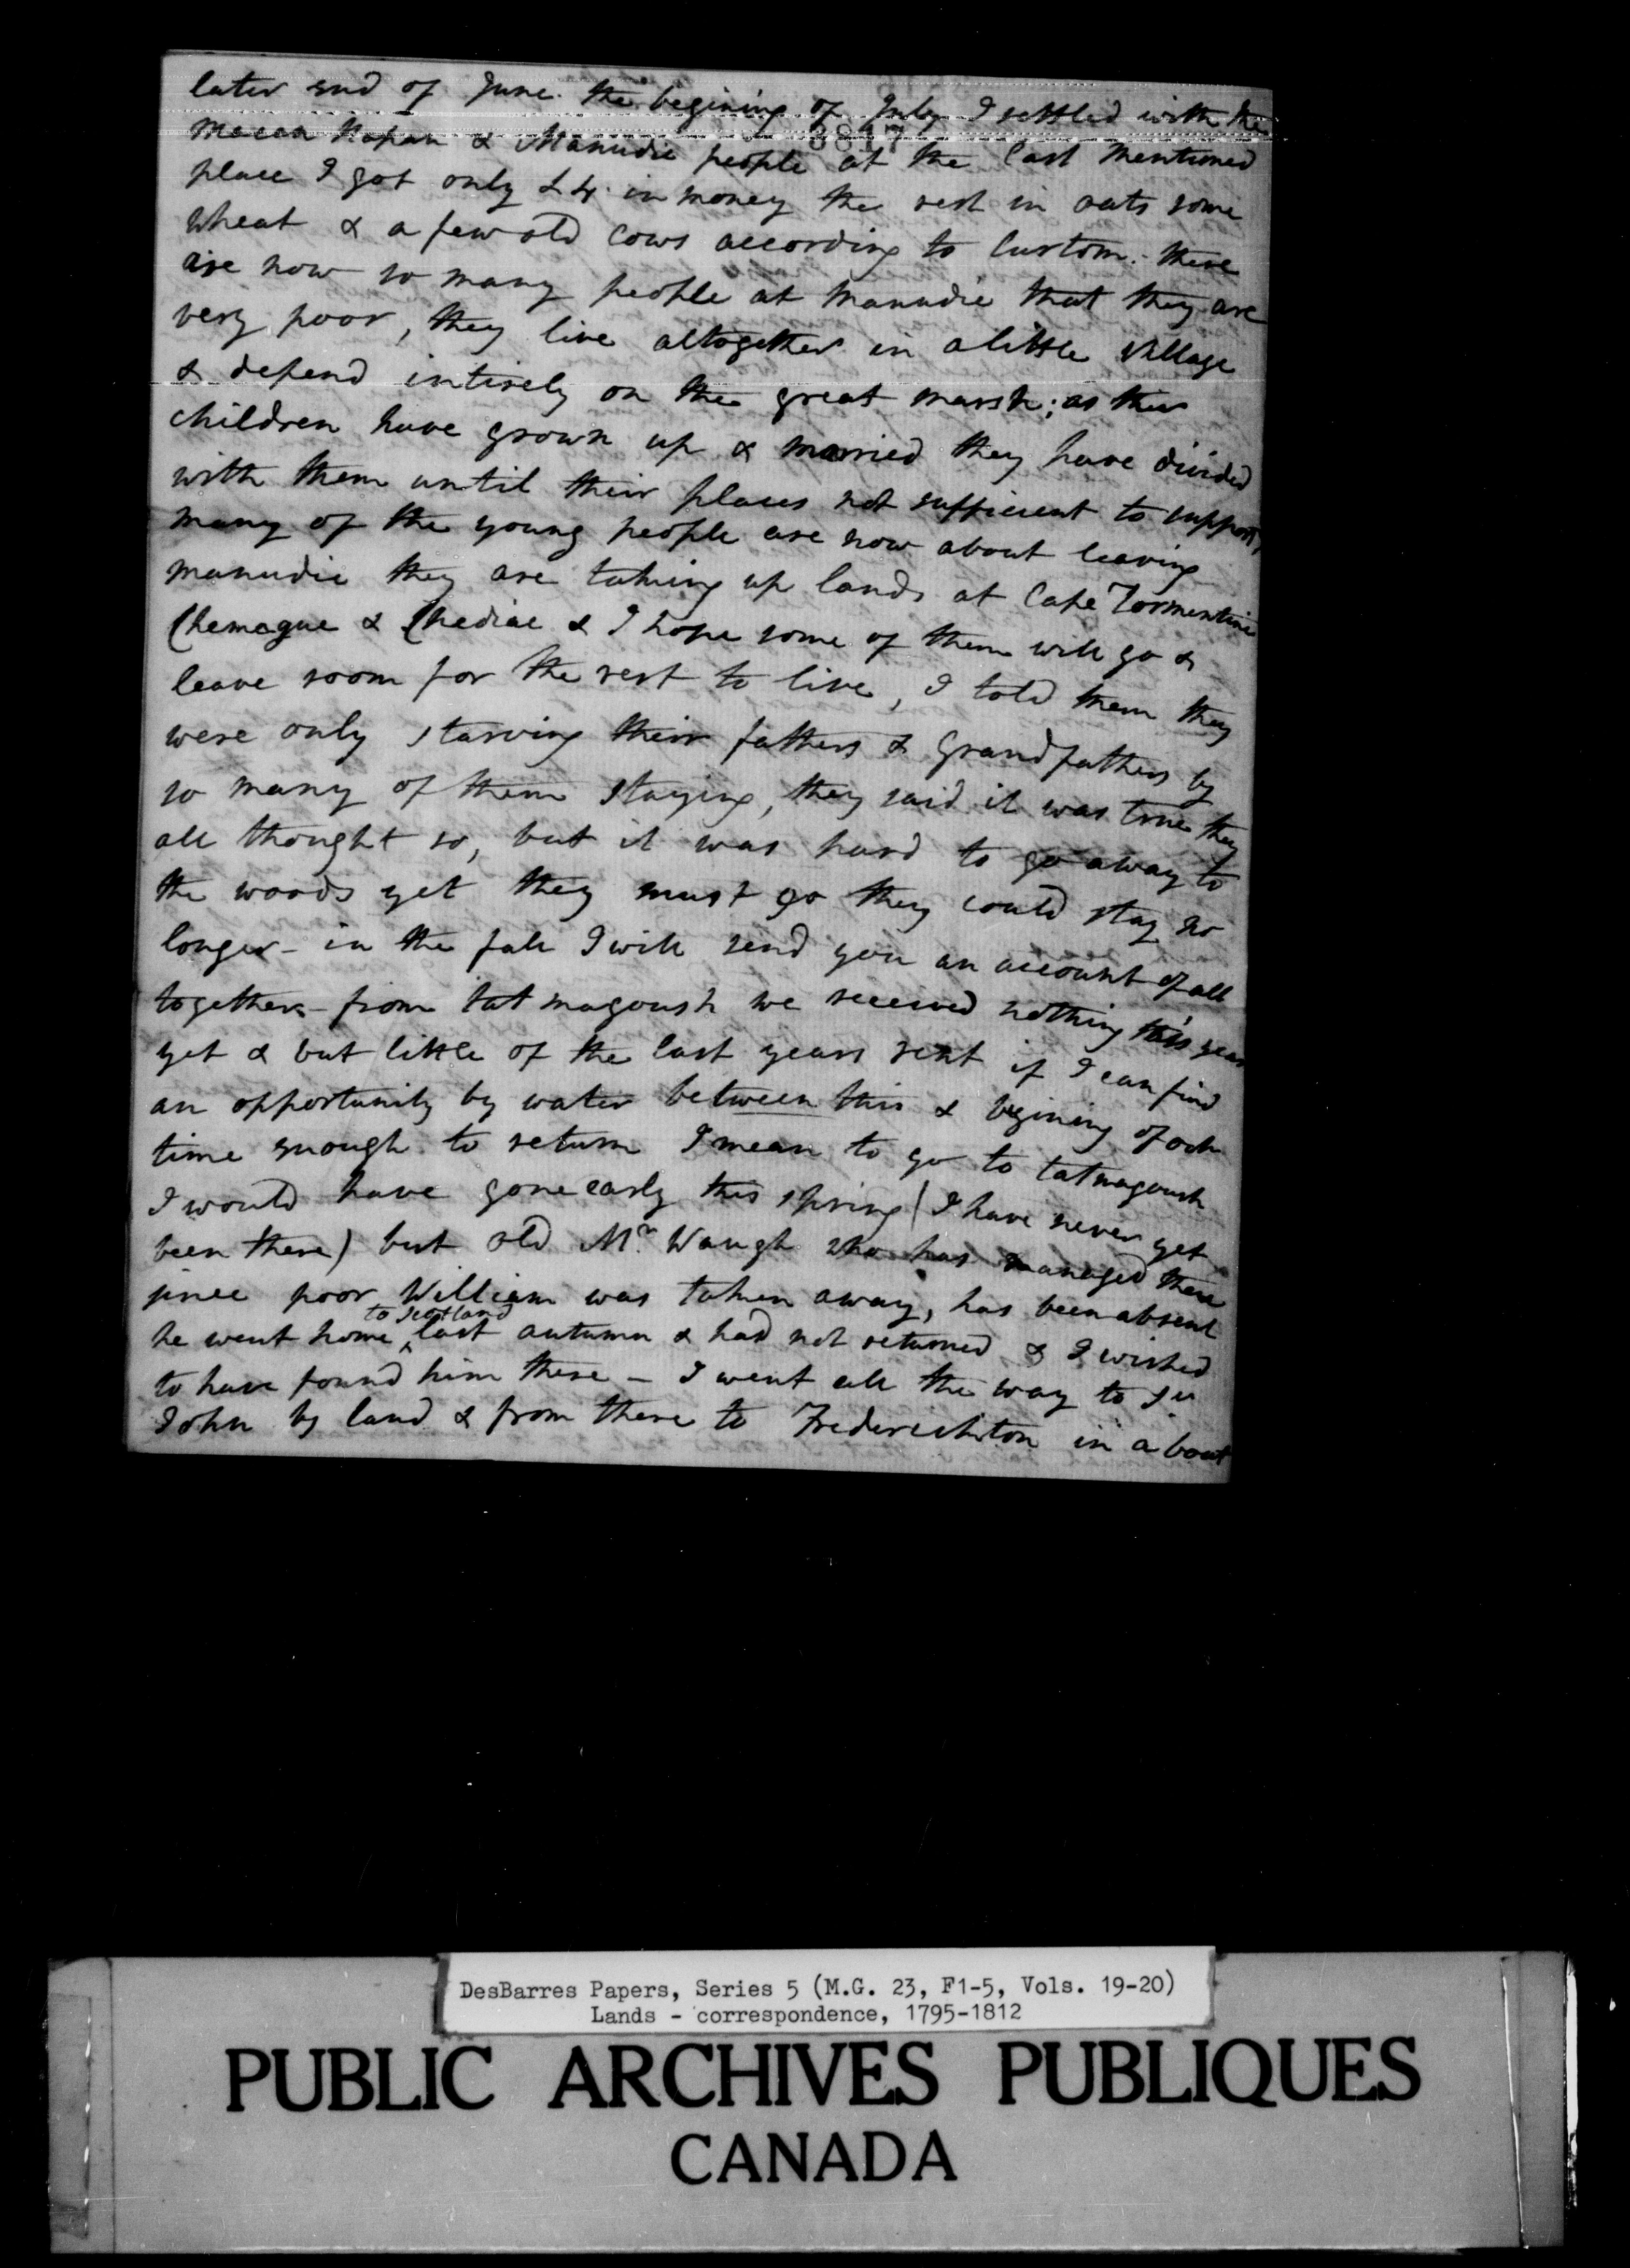 later end of June. the begining of July I settled with the
3817
Macan Napan & Manudie people at the last mentioned
place I got only £4. in money the rest in oats some
wheat & a few old cows according to Custom. - there
are now so many people at manudie that they are
very poor, they live altogether in a little village
& depend intirely on the great marsh; as their
children have grown up & married they have divided
with them until their places not sufficient to support,
many of the young people are now about leaving
manudie they are taking up lands at Cape Tormentine
Chemogue & Chediac & I hope some of them will go &
leave room for the rest to live, I told them they
were only starving their fathers & Grandfathers by
so many of them staying, they said it was true they
all thought so, but it was hard to go away to
the woods yet they must go they could stay no
longer - in the fall I will send you an account of all
together - from tatmagoush we received nothing this year
yet & but little of the last years rent if I can find
an opportunity by water between this & begining of octr
time enough to return I mean to go to tatmagoush
I would have gone early this spring (I have never yet
been there) but old Mr. Waugh who has managed there
since poor William was taken away, has been absent
to Scotland
he went home ^ last autumn & had not returned & I wished
to have found him there - I went all the way to St
John by land & from there to Frederickton in a boat
DesBarres Papers, Series 5 (M.G. 23, F1-5, Vols. 19-20)
Lands - correspondence, 1795-1812
PUBLIC ARCHIVES PUBLIQUES
CANADA